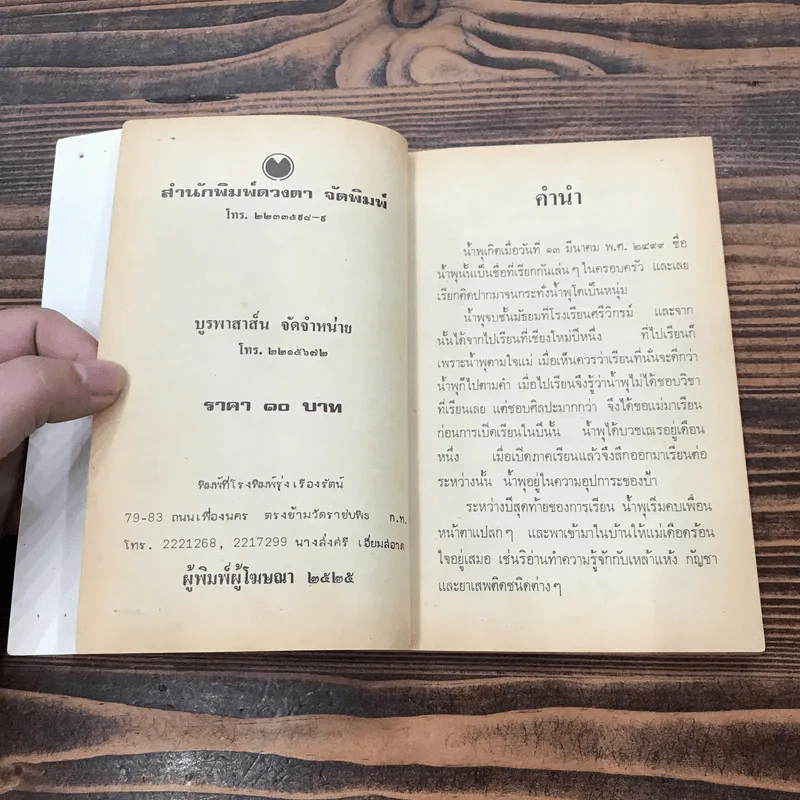 สำนักพิมพ์ดวงตา จัดพิมพ์
โทร. ๒๒๓๓๕๙๘-๙
บูรพาสาส์น จัดจำหน่าย
โทร. ๒๒๑๕๖๗๒
ราคา ๑๐ บาท
พิมพ์ที่โรงพิมพ์รุ่งเรืองรัตน์
79-83 ถนนเฟื่องนคร ตรงข้ามวัดราชบพิธ ก.ท.
โทร. 2221268, 2217299 นางส่งศรี เอี่ยมสอาด
ผู้พิมพ์ผู้โฆษณา ๒๕๒๕
คำนำ
น้ำพุเกิดเมื่อวันที่ ๑๓ มีนาคม พ.ศ. ๒๔๙๙ ชื่อ
น้ำพุนั้นเป็นชื่อที่เรียกกันเล่น ๆ ในครอบครัว และเลย
เรียกติดปากมาจนกระทั่งน้ำพุโตเป็นหนุ่ม
น้ำพุจบชั้นมัธยมที่โรงเรียนศรีวิกรม์ และจาก
นั้นได้จากไปเรียนที่เชียงใหม่ปีหนึ่ง ที่ไปเรียนก็
เพราะน้ำพุตามใจแม่ เมื่อเห็นควรว่าเรียนที่นั่นจะดีกว่า
น้ำพุก็ไปตามคำ เมื่อไปเรียนจึงรู้ว่าน้ำพุไม่ได้ชอบวิชา
ที่เรียนเลย แต่ชอบศิลปะมากกว่า จึงได้ขอแม่มาเรียน
ก่อนการเปิดเรียนในปีนั้น น้ำพุได้บวชเณรอยู่เดือน
หนึ่ง เมื่อเปิดภาคเรียนแล้วจึงสึกออกมาเรียนต่อ
ระหว่างนั้น น้ำพุอยู่ในความอุปการะของป้า
ระหว่างปีสุดท้ายของการเรียน น้ำพุเริ่มคบเพื่อน
หน้าตาแปลก ๆ และพาเข้ามาในบ้านให้แม่เดือดร้อน
ใจอยู่เสมอ เช่นริอ่านทำความรู้จักกับเหล้าแห้ง กัญชา
และยาเสพติดชนิดต่าง ๆ